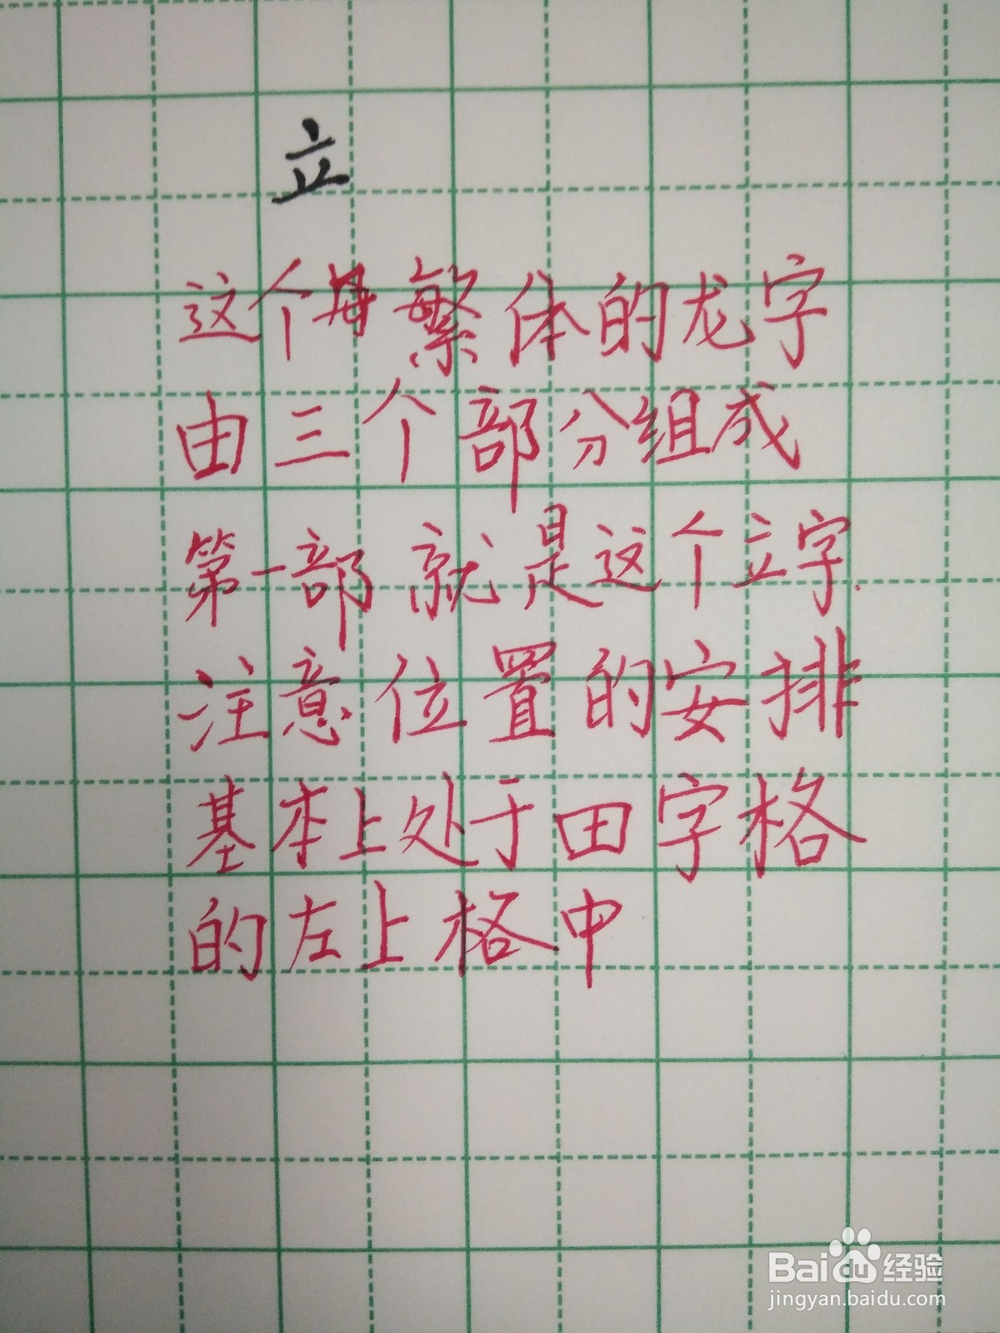 立
这个繁体的龙字
由三个部分组成
第一部就是这个立字.
注意位置的安排
基本上处于田字格
的左上格中
Baidu经验
jingyan.baidu.com